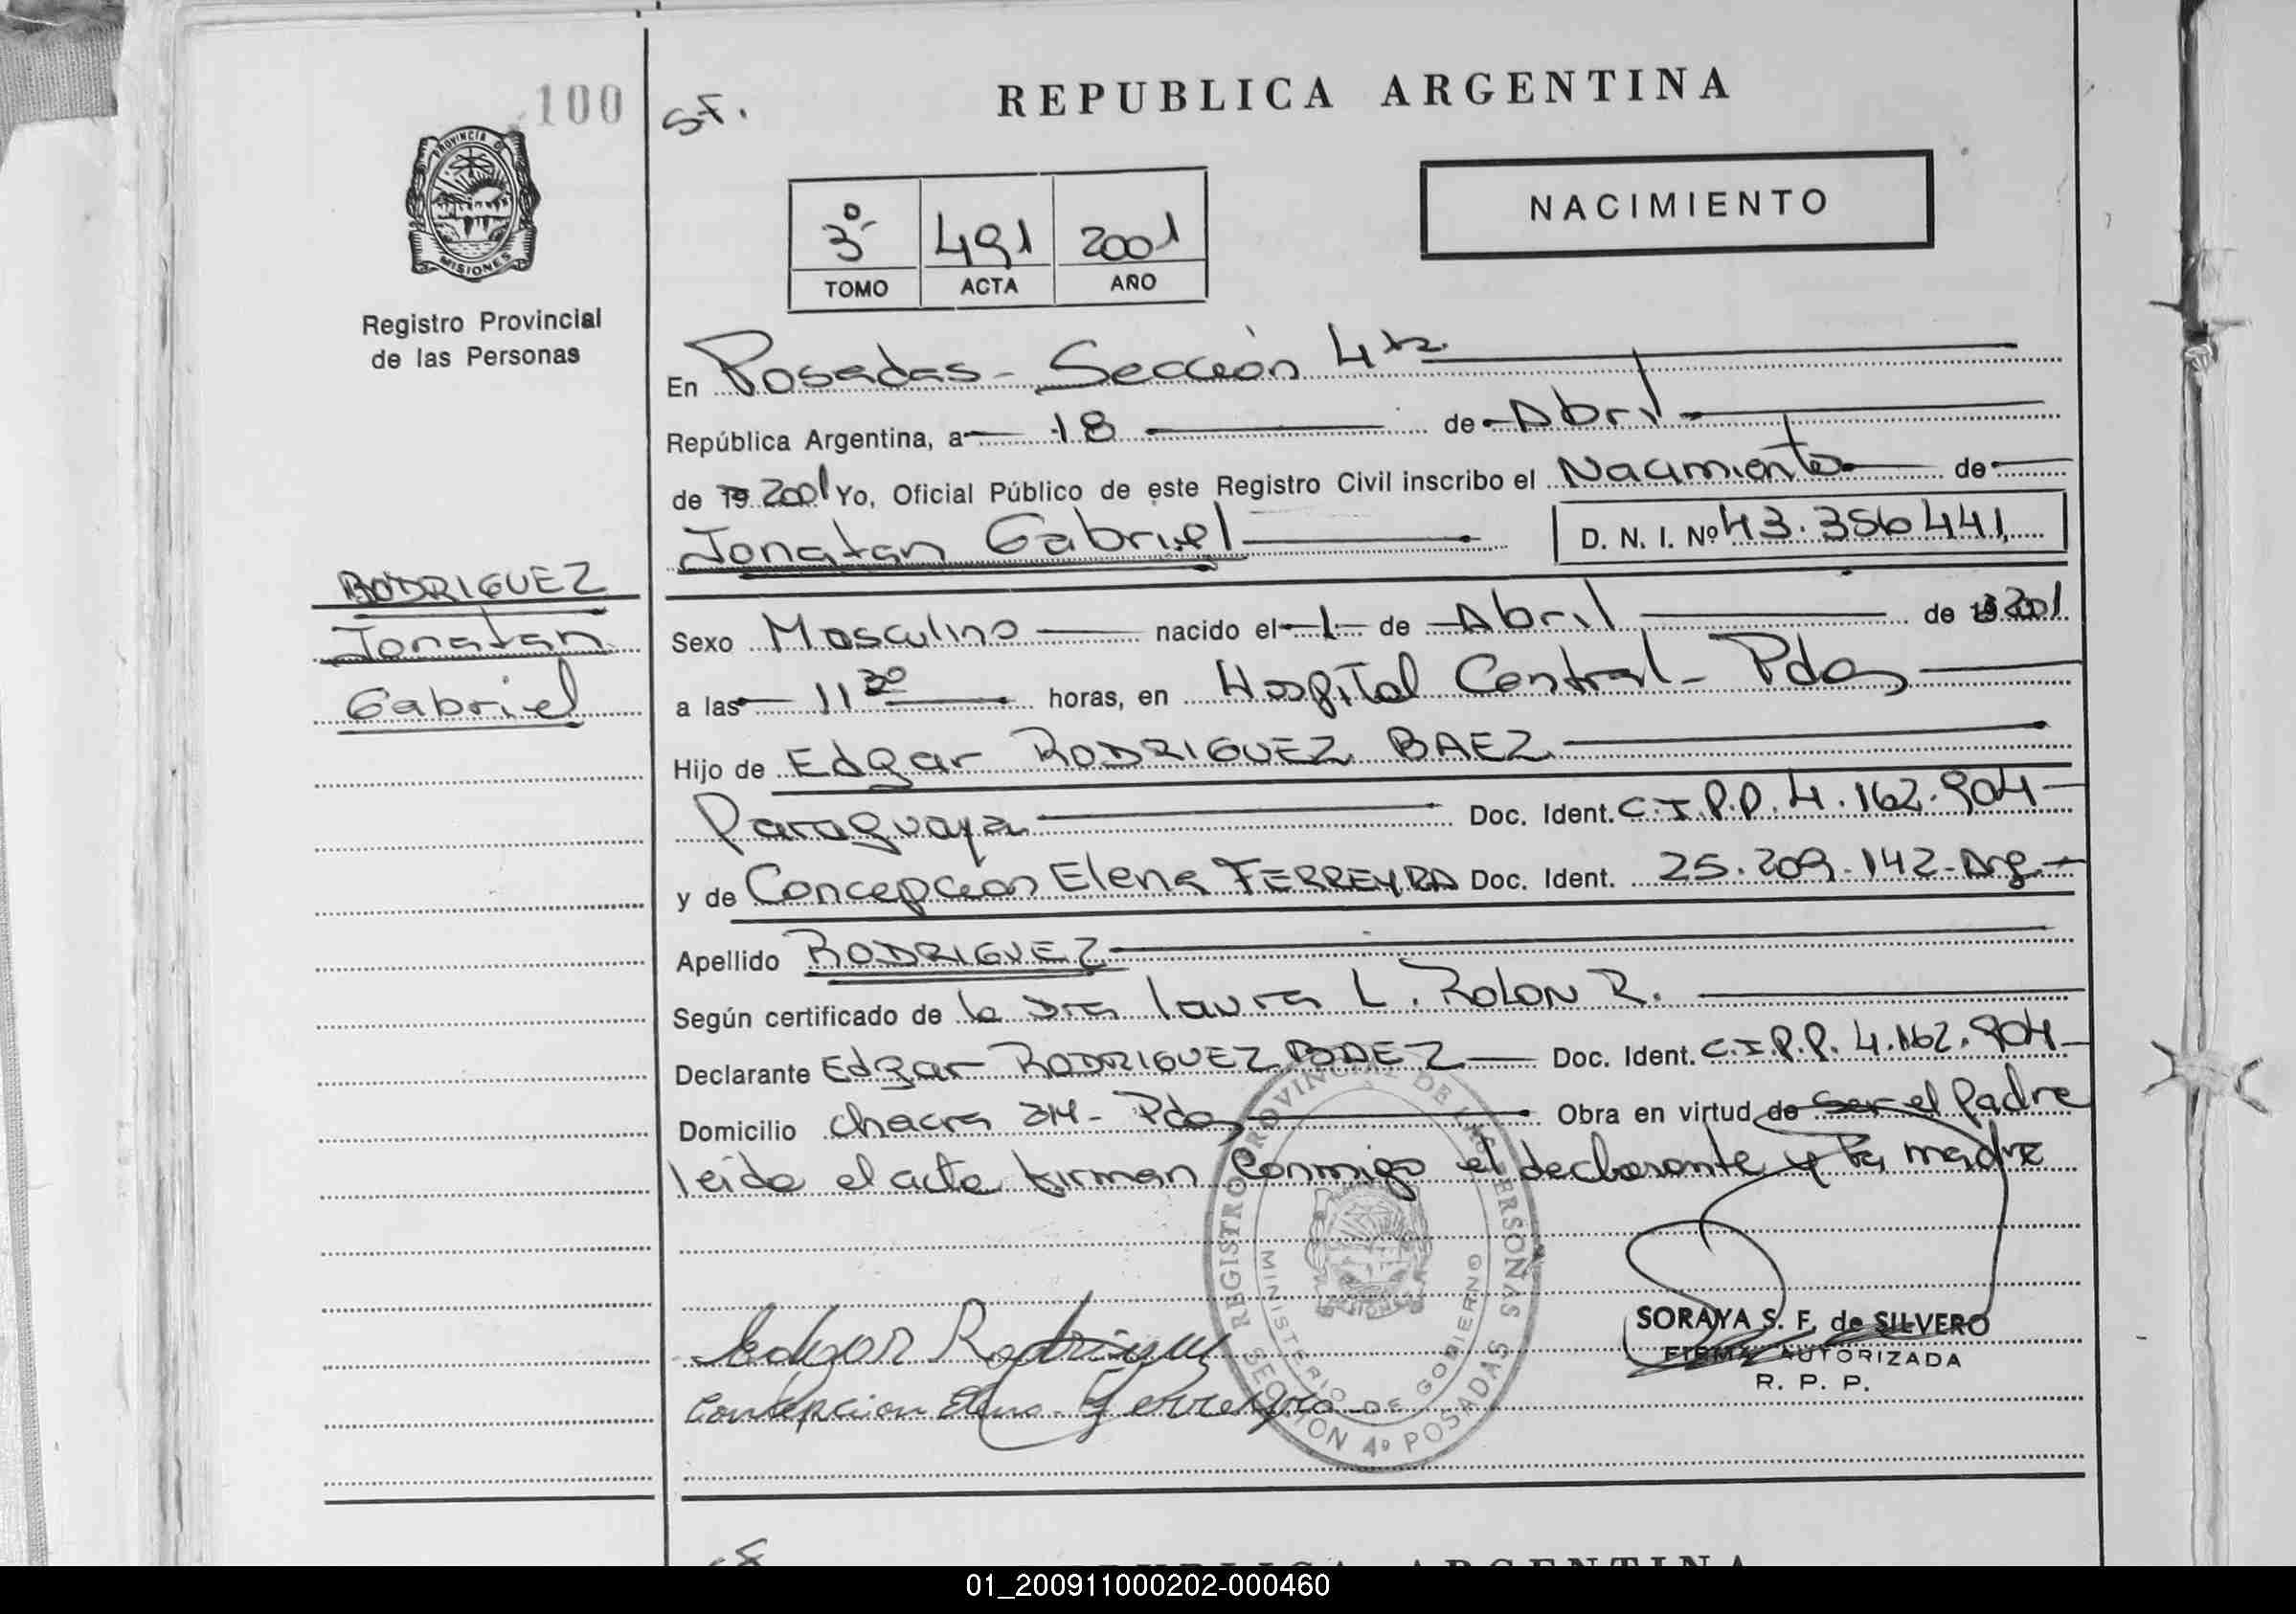 100
S.F.
REPUBLICA ARGENTINA
PROVINCIA DE
MISIONES
Registro Provincial
de las Personas
3º 491 2001
TOMO ACTA AÑO
NACIMIENTO
En Posadas - Sección 4ta
República Argentina, a 18 de Abril
de 19 2001 Yo, Oficial Público de este Registro Civil inscribo el Nacimiento de
Jonatan Gabriel D. N. I. Nº 43.356.441
RODRIGUEZ
Jonatan
Gabriel
Sexo Masculino nacido el 1 de Abril de 19 2001
a las 11 30 horas, en Hospital Central - Pdas
Hijo de Edgar RODRIGUEZ BAEZ
Paraguaya Doc. Ident. C.I.P.P. 4.162.904
y de Concepcion Elena FERREYRA Doc. Ident. 25.209.142 - Arg -
Apellido RODRIGUEZ
Según certificado de la Dra Laura L. ROLON R.
Declarante Edgar RODRIGUEZ BAEZ Doc. Ident. C.I.P.P. 4.162.904
Domicilio chacra 214 - Pdas Obra en virtud de ser el Padre
leida el acta firman conmigo el declarante y la madre
REGISTRO PROVINCIAL DE LAS PERSONAS
MINISTERIO DE GOBIERNO
SECCION 4º POSADAS
Edgar Rodriguez
Concepcion Elena Ferreyra
SORAYA S. F. de SILVERO
FIRMA AUTORIZADA
R. P. P.
REPUBLICA ARGENTINA
01_200911000202-000460